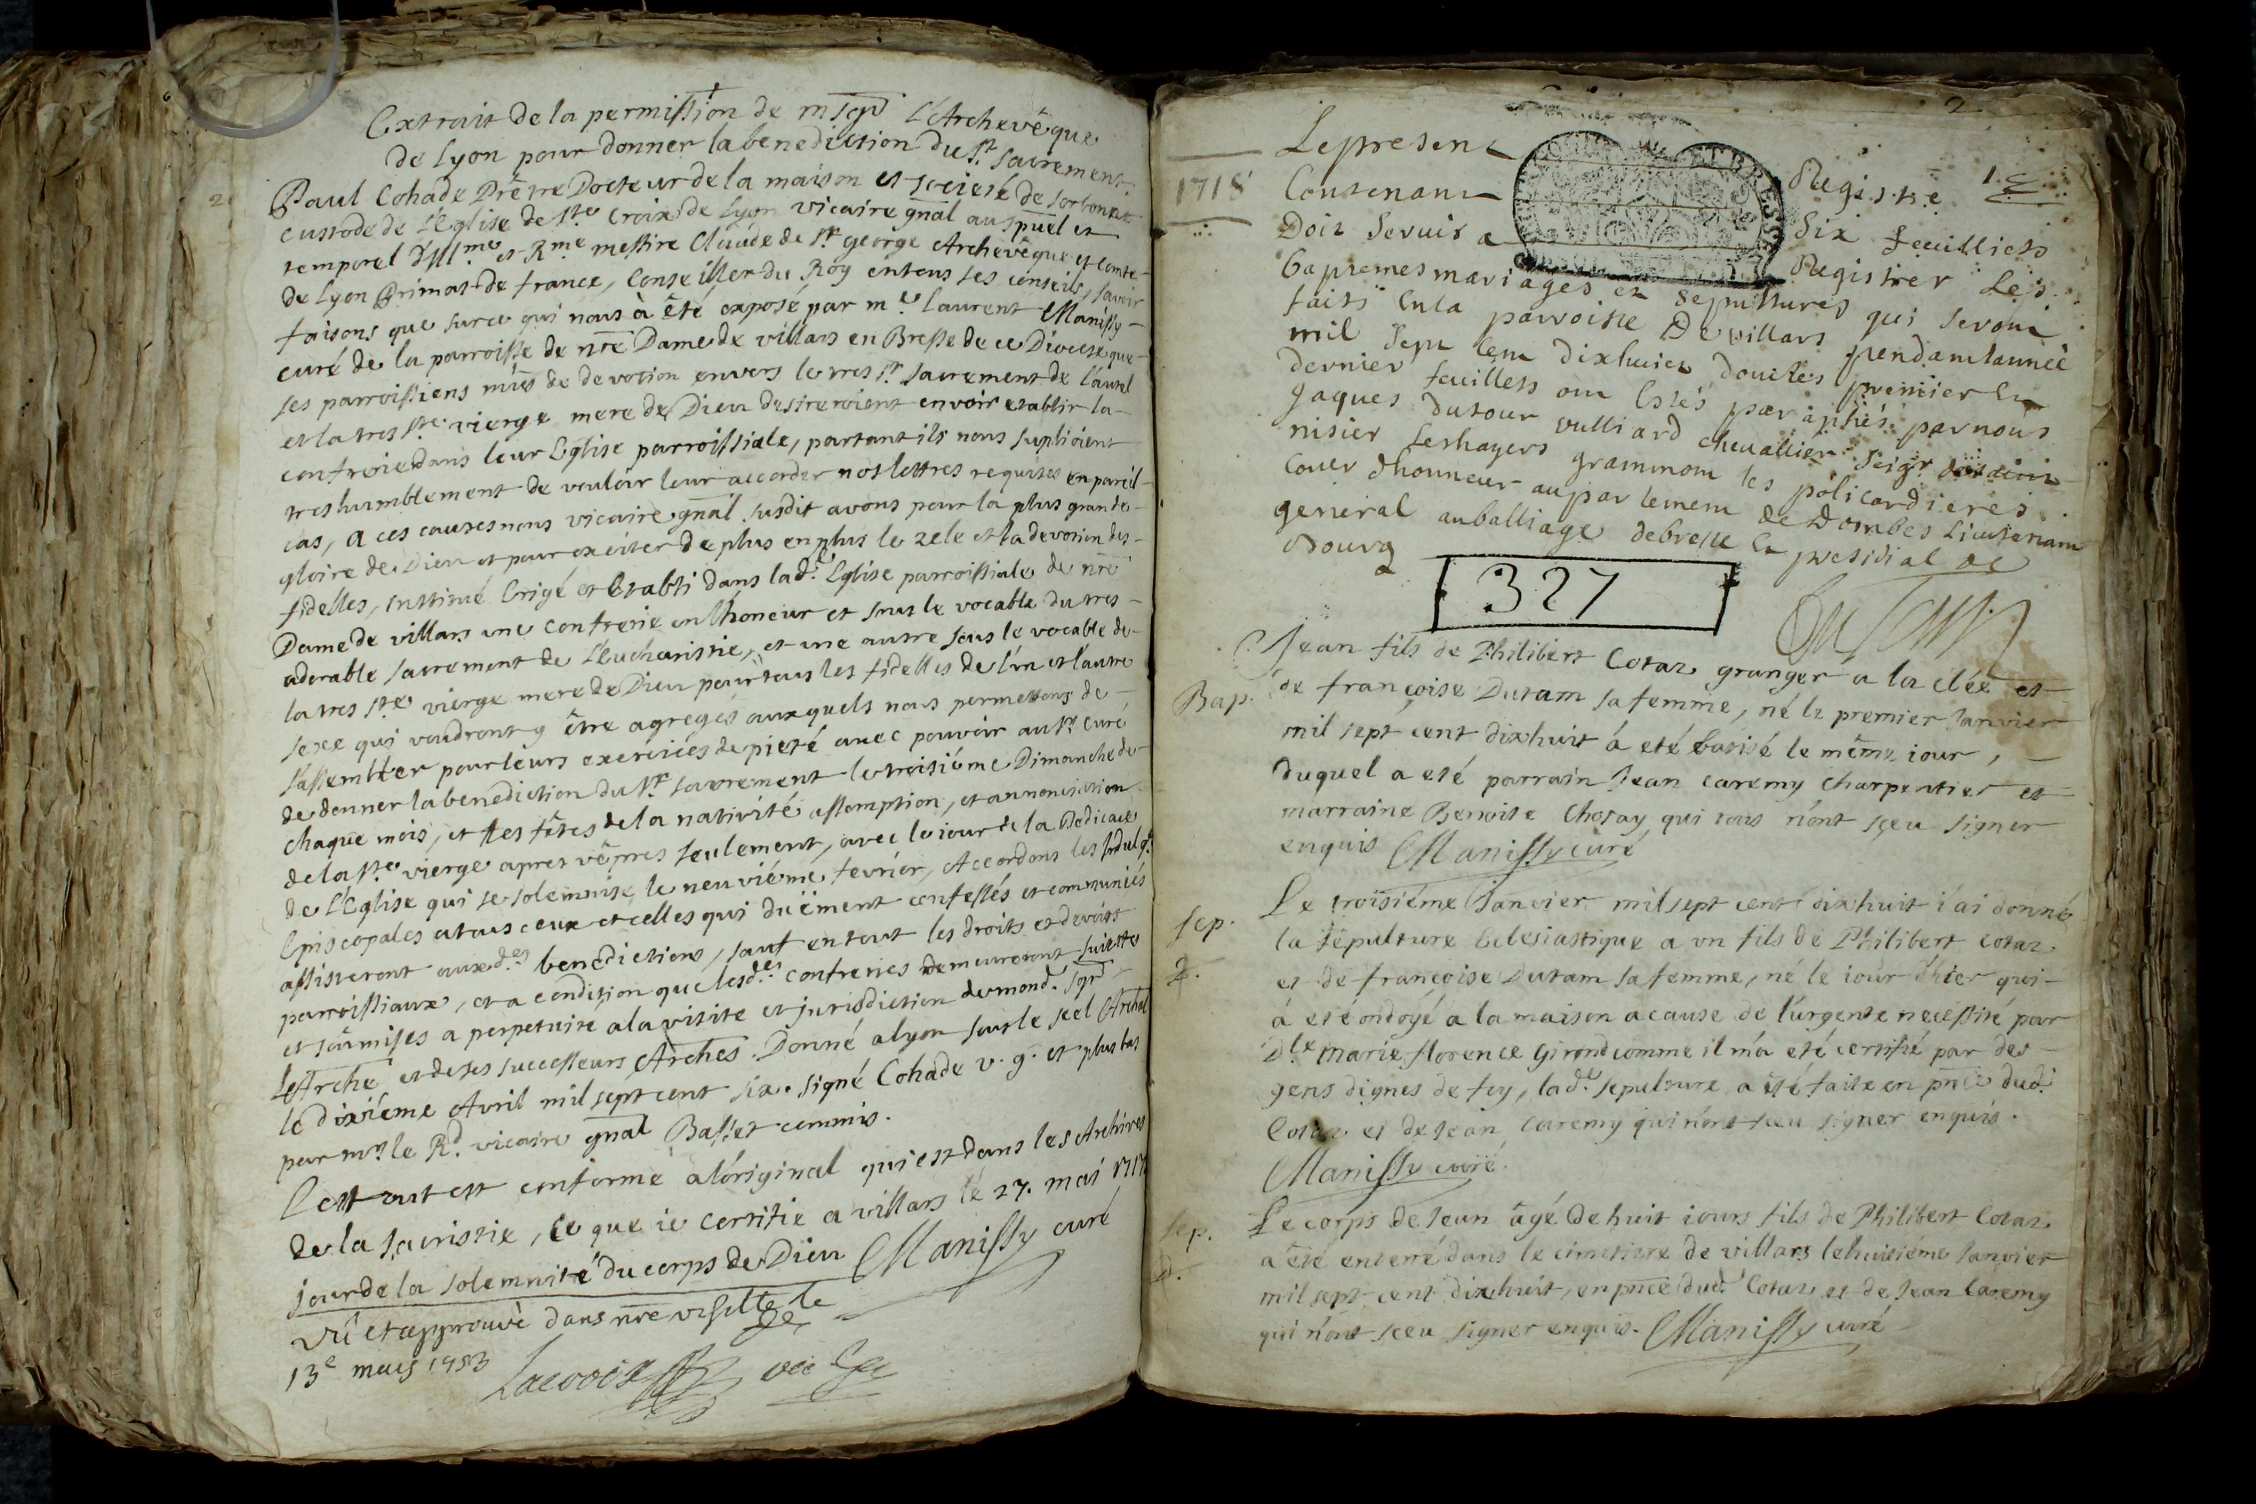 Extrait de la permission de mseigr L'Archevêque
de Lyon pour donner la benediction du st. sacrement.
Paul Cohade Prêtre Docteur de la maison et societé de sorbonne
custode de L'Eglise de ste Croix de Lyon vicaire gnal au spuel et
temporel d'Illme et Rme messire Claude de st george Archevêque et comte
de Lyon Primat de france, Conseiller du Roy en tous ses conseils, savoir
faisons que sur ce qui nous à été exposé par me. laurent Manissy
curé de la parroisse de nre Dame de villars en Bresse de ce Diocese que
ses parroissiens mûs de devotion envers le tres st. sacrement de l'autel
et la tres ste. vierge mere de Dieu desireroient en voir etablir la
confrerie dans leur Eglise parroissiale, partant ils nous suplioient
tres humblement de vouloir leur accorder nos lettres requises en pareil
cas, a ces causes nous vicaire gnal susdit avons pour la plus grande
gloire de Dieu et pour exciter de plus en plus le zele et la devotion des
fidelles, institué Erigé et Etabli dans lade. Eglise parroissiale de nre
Dame de villars une confrerie en l'honeur et sous le vocable du tres
adorable sacrement de l'Eucharistie, et une autre sous le vocable de
la tres ste vierge mere de Dieu pour tous les fidelles de l'un et l'autre
sexe qui voudront y être agregés auxquels nous permettons de
s'assembler pour leurs exercices de pieté avec pouvoir au sr. curé
de donner la benediction du st. sacrement le troisiéme Dimanche de
chaque mois, et les fêtes de la nativité assomption, et annonciation
de la ste vierge apres vêpres seulement, avec le iour de la Dedicace
de L'Eglise qui se solemnise le neuviéme fevrier, Accordons les Indulg.
Episcopales a tous ceux et celles qui duëment confessés et communiés
assisteront auxdes benedictions, sauf en tout les droits et devoirs
parroissiaux, et a condition que lesdes. confreries demeureront suiettes
et soûmises a perpetuité a la visite et jurisdiction de mond. sgr
L'Arche et de ses successeurs Arches. Donné a lyon sous le scel Archal
le dixiéme Avril mil sept cent six. signé Cohade v. g. et plus bas
par mr. le Rd. vicaire gnal Basset commis.
L'extrait est conforme à l'original qui est dans les Archives
de la sacristie, ce que ie certifie a villars le 27. mai 1717
jour de la solemnité du corps de Dieu Manissy curé
Vû et approuvé dans nre visitte le
13e mars 1753 Lacroix vic ge
2
1718
Le present Registre
Contenant Six feuilliets
Doit servir a Registrer Les
Baptemes mariages et sepultures qui seront
faits en la parroisse De villars pendant lannéé
mil sept cent dixhuict dont les premier et
dernier feuillets ont Estés paraphés par nous
Jaques dutour vulliard chevallier Seigr
nisier Leshayers grammont les policardieres
Coner dhonneur au parlement de Dombes Lieutenant
general au balliage de bresse et presidial de
Bourg
327
Dutour
Bap.
Jean fils de Philibert Cotaz granger à la clée et
de françoise Dutam sa femme, né le premier Janvier
mil sept cent dixhuit à eté batisé le même iour,
duquel a eté parrain Jean caremy charpentier et
marraine Benoite Chosay qui tous n'ont sçeu signer
enquis Manissy curé
sep.
2.
Le troisiéme Janvier mil sept cent dixhuit i'ai donné
la sepulture Eclesiastique a un fils de Philibert cotaz
et de françoise Dutam sa femme, né le iour d'hier qui
à eté ondoyé a la maison a cause de l'urgente necessité par
Dlle marie florence Girond comme il m'a eté certifié par des
gens dignes de foy, lade. sepulture a eté faite en pnce dud.
Cotaz et de Jean Caremy qui n'ont sceu signer enquis.
Manissy curé.
sep.
Le corps de Jean âgé de huit iours fils de Philibert Cotaz
a été enterré dans le cimetiere de villars le huitiéme Janvier
mil sept cent dixhuit, en pnce dud. Cotaz et de Jean Caremy
qui n'ont sçeu signer enquis. Manissy curé